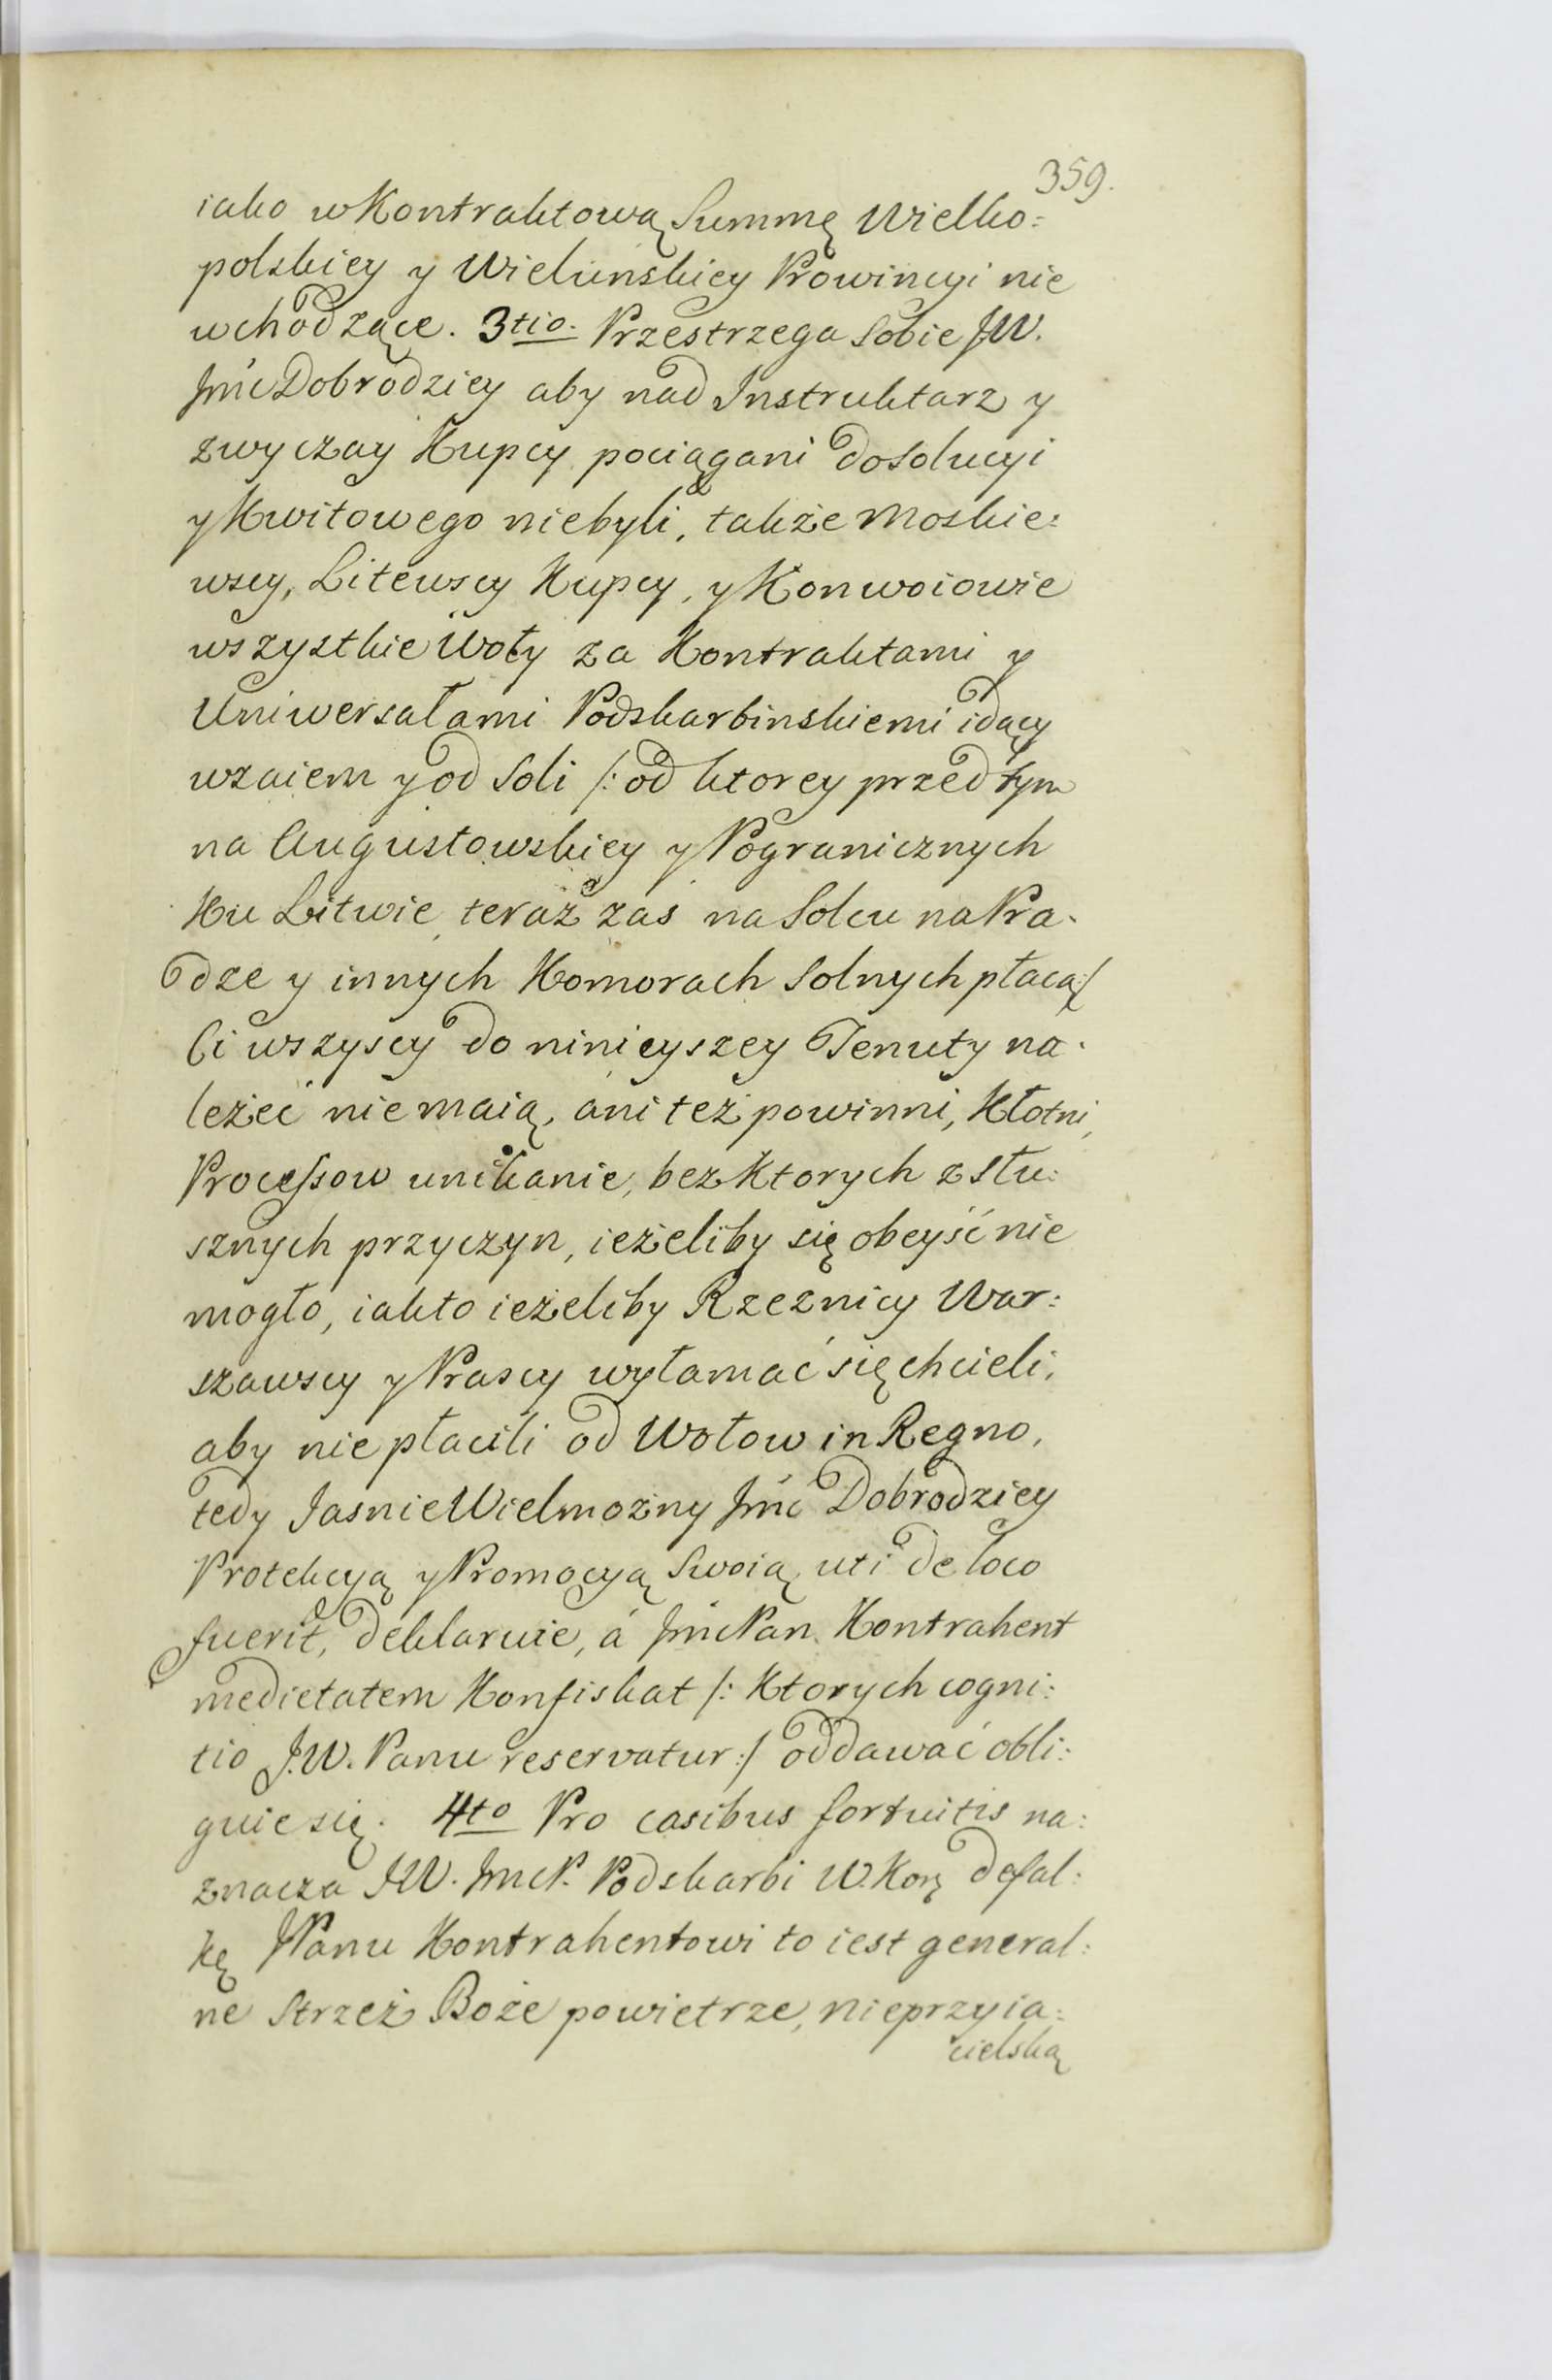 359.
iako w Kontraktową Summę Wielko:
polskiey y Wielunskiey Prowincyi nie
wchodzące. 3tio. Przestrzega Sobie JW.
Jmć Dobrodziey aby nad Instruktarz y
zwyczay Kupcy pociągani do Solucyi
y Kwitowego niebyli, także Moskie:
wscy, Litewscy Kupcy, y Konwoiowie
wszystkie Woły za Kontraktami y
Uniwersałami Podskarbinskiemi idący
wzaiem y od Soli /: od ktorey przed tym
na Augustowskiey y Pogranicznych
Ku Litwie, teraz zas na Solcu na Pra:
dze y innych Komorach Solnych płacą:/
Ci wszyscy do ninieyszey Tenuty na:
leżeć nie maią, ani też powinni, Kłotni,
Processow unikanie, bez Ktorych z słu:
sznych przyczyn, ieżeliby się obeyść nie
mogło, iakto ieżeliby Rzeznicy War:
szawscy y Prascy wyłamać się chcieli,
aby nie płacili od Wołow in Regno,
tedy JasnieWielmożny Jmć Dobrodziey
Protekcyą y Promocyą Swoią, uti de loco
fuerit, deklaruie, á Jmć Pan Kontrahent
medietatem Konfiskat /: Ktorych cogni:
tio J.W. Panu reservatur :/ oddawać obli:
guie się. 4to Pro casibus fortuitis na:
znacza JW. Jmć P. Podskarbi W. Korę defal:
kę JPanu Kontrahentowi to iest general:
ne Strzeż Boże powietrze, nieprzyia:
cielską